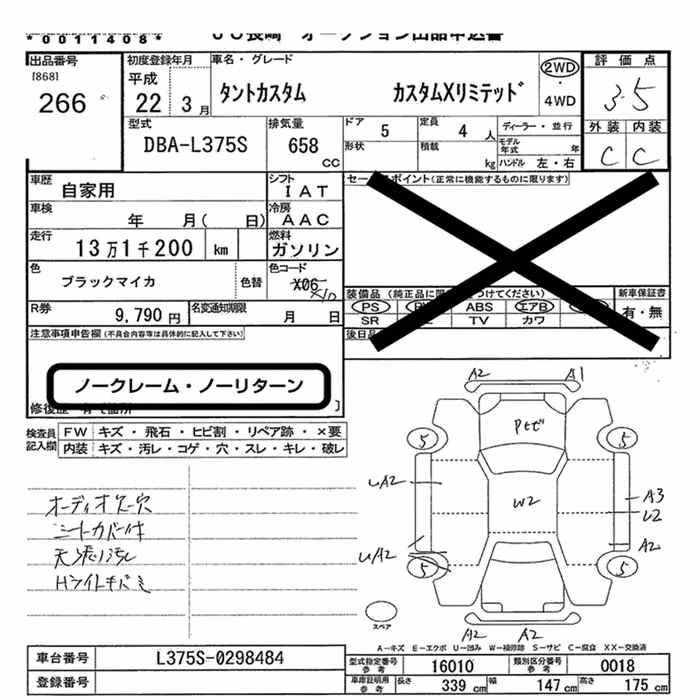 *0011408* JU長崎 オークション出品申込書
出品番号 初度登録年月 車名・グレード 評価点
[868] 平成 2WD
266 22 3月 タントカスタム カスタムXリミテッド ・4WD 3.5
型式 排気量 ドア 5 定員 4 人 ディーラー・並行 外装 内装
DBA-L375S 658 CC 形状 積載 kg モデル年式 年 C C
ハンドル 左・右
車歴 自家用 シフト IAT セールスポイント(正常に機能するものに限ります)
車検 年 月( 日) 冷房 AAC
走行 13万1千200 km 燃料 ガソリン
色 ブラックマイカ 色替 色コード X06
X10
装備品 (純正品に限 をつけてください) 新車保証書
R券 9,790 円 名変通知期限 月 日 PS ABS エアB 有・無
SR TV カワ
注意事項申告欄(不具合内容等は具体的に記入して下さい) 後日品
ノークレーム・ノーリターン
修復歴 有(箇所 ]
検査員記入欄 FW キズ・飛石・ヒビ割・リペア跡・×要
内装 キズ・汚レ・コゲ・穴・スレ・キレ・破レ
A2 A1
Pセビ
5 5
UA2 W2 A3
U2
オーディオレス穴
シートカバー付
U/A2 A2
天張汚レ
5 5
Hライトキバミ
スペア
A2 A2
A-キズ E-エクボ U-凹み W-補修跡 S-サビ C-腐食 XX-交換済
車台番号 L375S-0298484 型式指定番号参考 16010 類別区分番号参考 0018
登録番号 車庫証明用参考 長さ 339 cm 幅 147 cm 高さ 175 cm